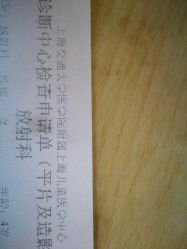 上海交通大学医学院附属上海儿童医学中心
诊断中心检查申请单（平片及造影
放射科
性别：女
年龄：4岁